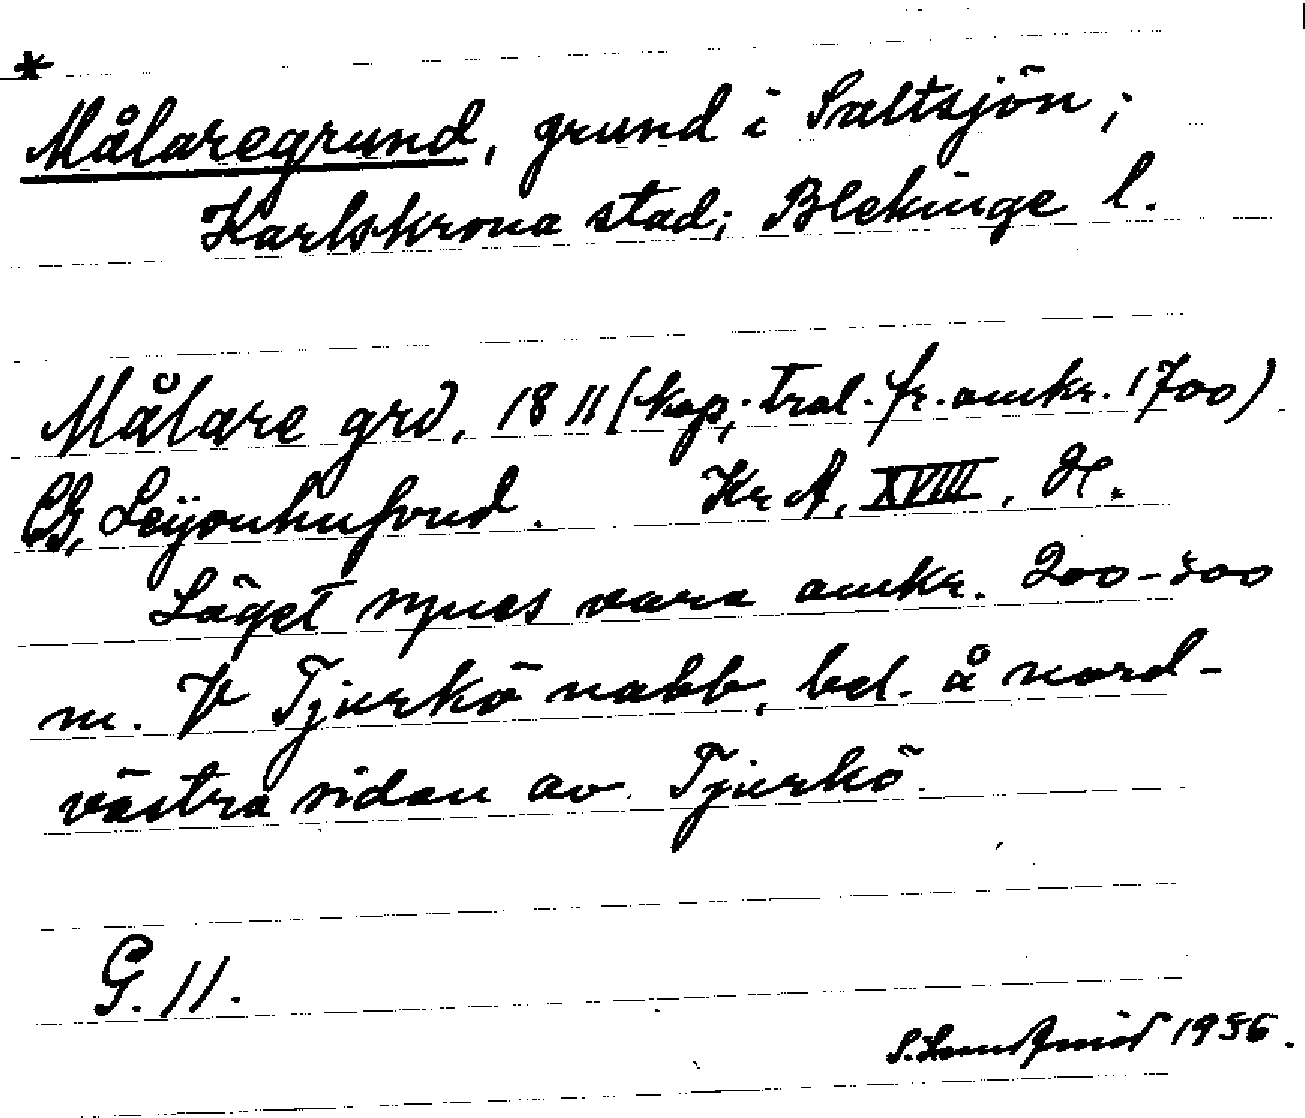 *
Målaregrund, grund i Saltsjön;
Karlskrona stad; Blekinge l.
Målare grd, 1811 (kop; tral. fr. omkr. 1700)
CG, Leijonhufvud. Kr A, XVIII, H.
Läget synes vara omkr. 200-500
m. V Tjurkö nabb, bel. å nord-
västra sidan av Tjurkö.
G. 11.
1956.